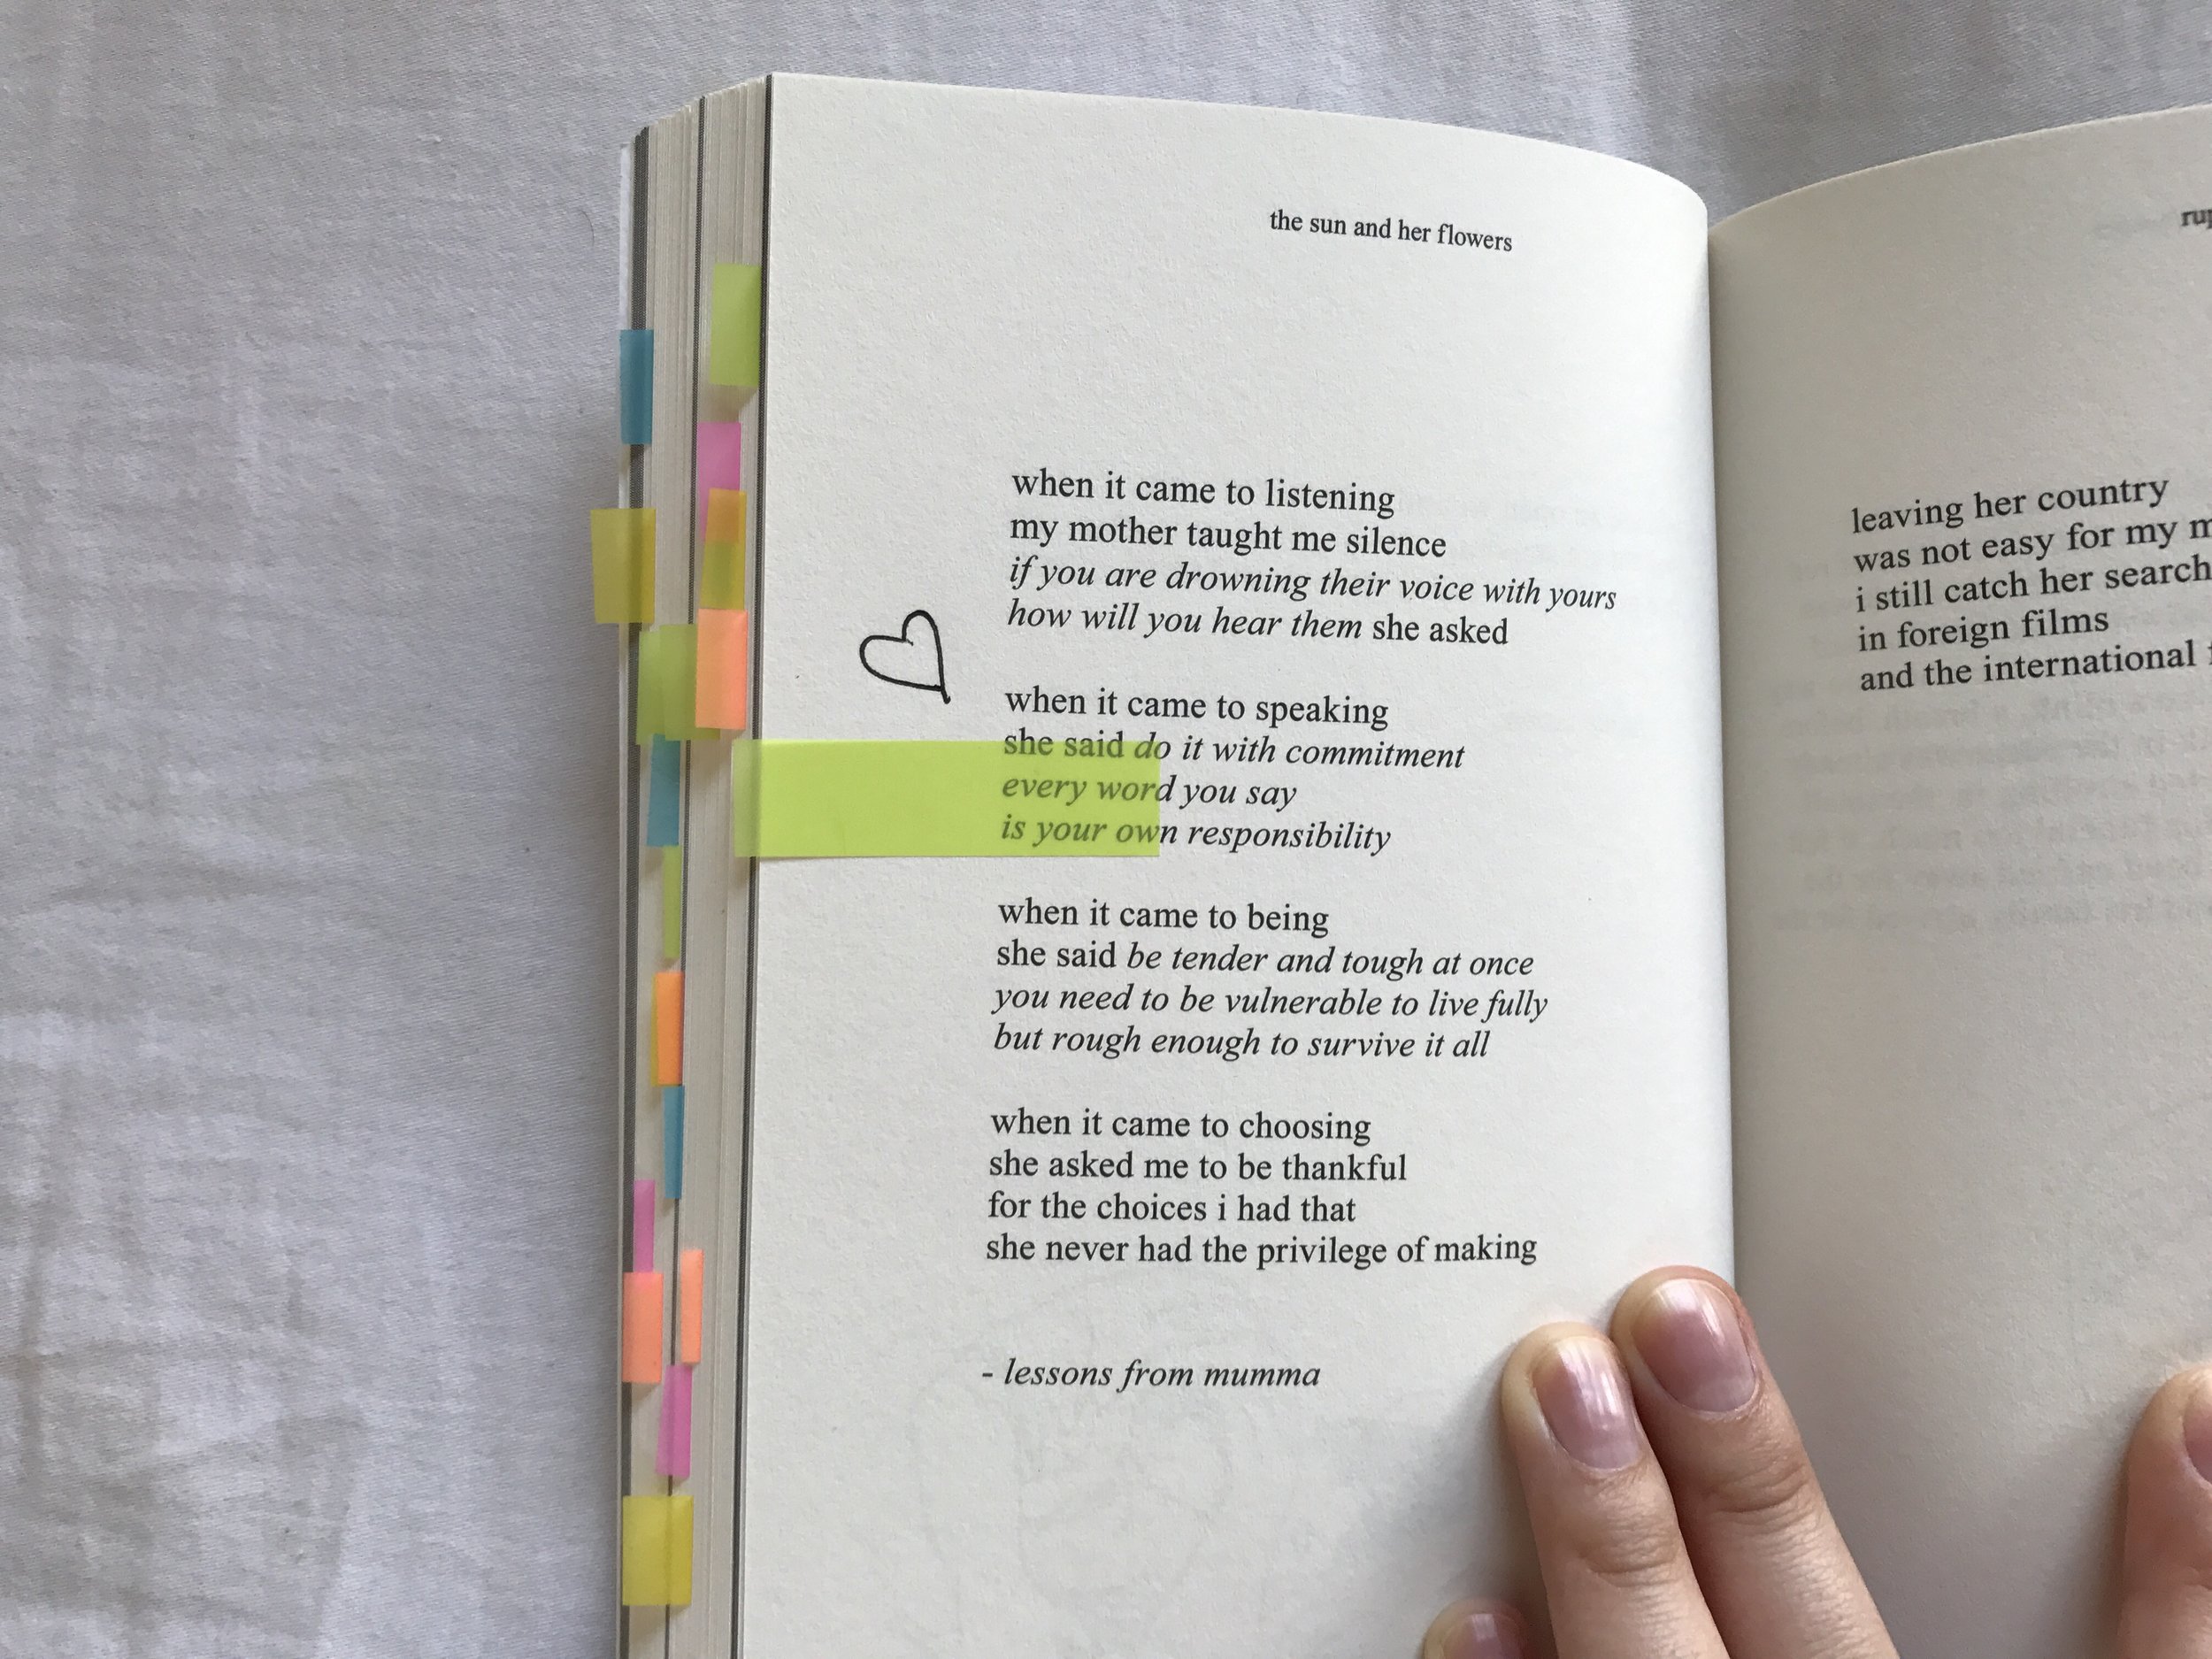 the sun and her flowers
when it came to listening
my mother taught me silence
if you are drowning their voice with yours
how will you hear them she asked
when it came to speaking
she said do it with commitment
every word you say
is your own responsibility
when it came to being
she said be tender and tough at once
you need to be vulnerable to live fully
but rough enough to survive it all
when it came to choosing
she asked me to be thankful
for the choices i had that
she never had the privilege of making
- lessons from mumma
leaving her country
was not easy for my
i still catch her search
in foreign films
and the international